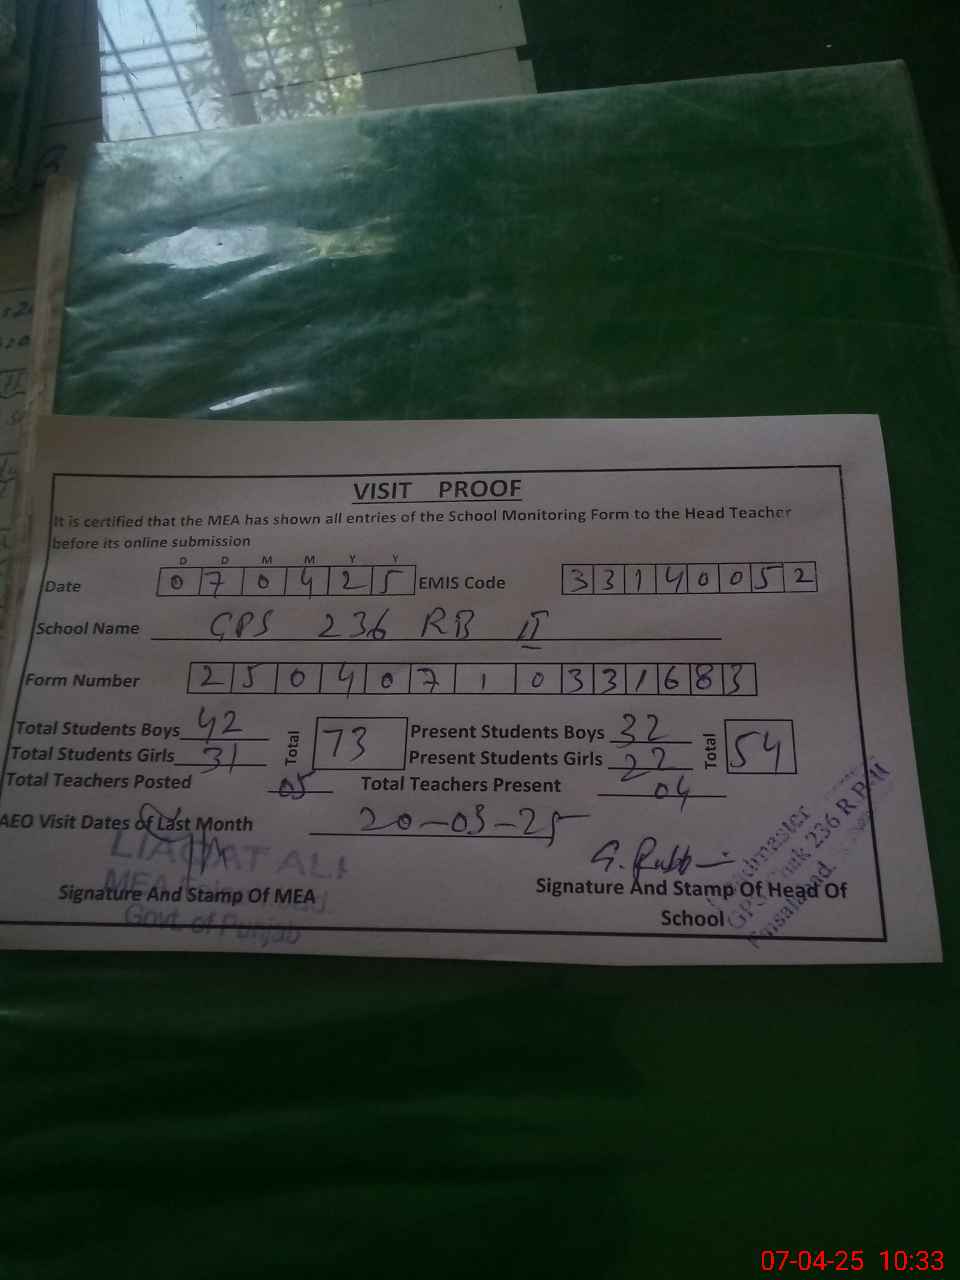 VISIT PROOF
It is certified that the MEA has shown all entries of the School Monitoring Form to the Head Teacher
before its online submission
D D M M Y Y
Date 0 7 0 4 2 5 EMIS Code 3 3 1 4 0 0 5 2
School Name GPS 236 RB II
Form Number 2 5 0 4 0 7 1 0 3 3 1 6 8 3
Total Students Boys 42 Total 73 Present Students Boys 32 Total 54
Total Students Girls 31 Present Students Girls 22
Total Teachers Posted 05 Total Teachers Present 04
AEO Visit Dates of Last Month 20-03-25
LIAQAT ALI
MEA
Govt. of Punjab
Signature And Stamp Of MEA
Signature And Stamp Of Head Of
School
Headmaster
GPS Chak 236 R.B-II
Faisalabad
07-04-25 10:33